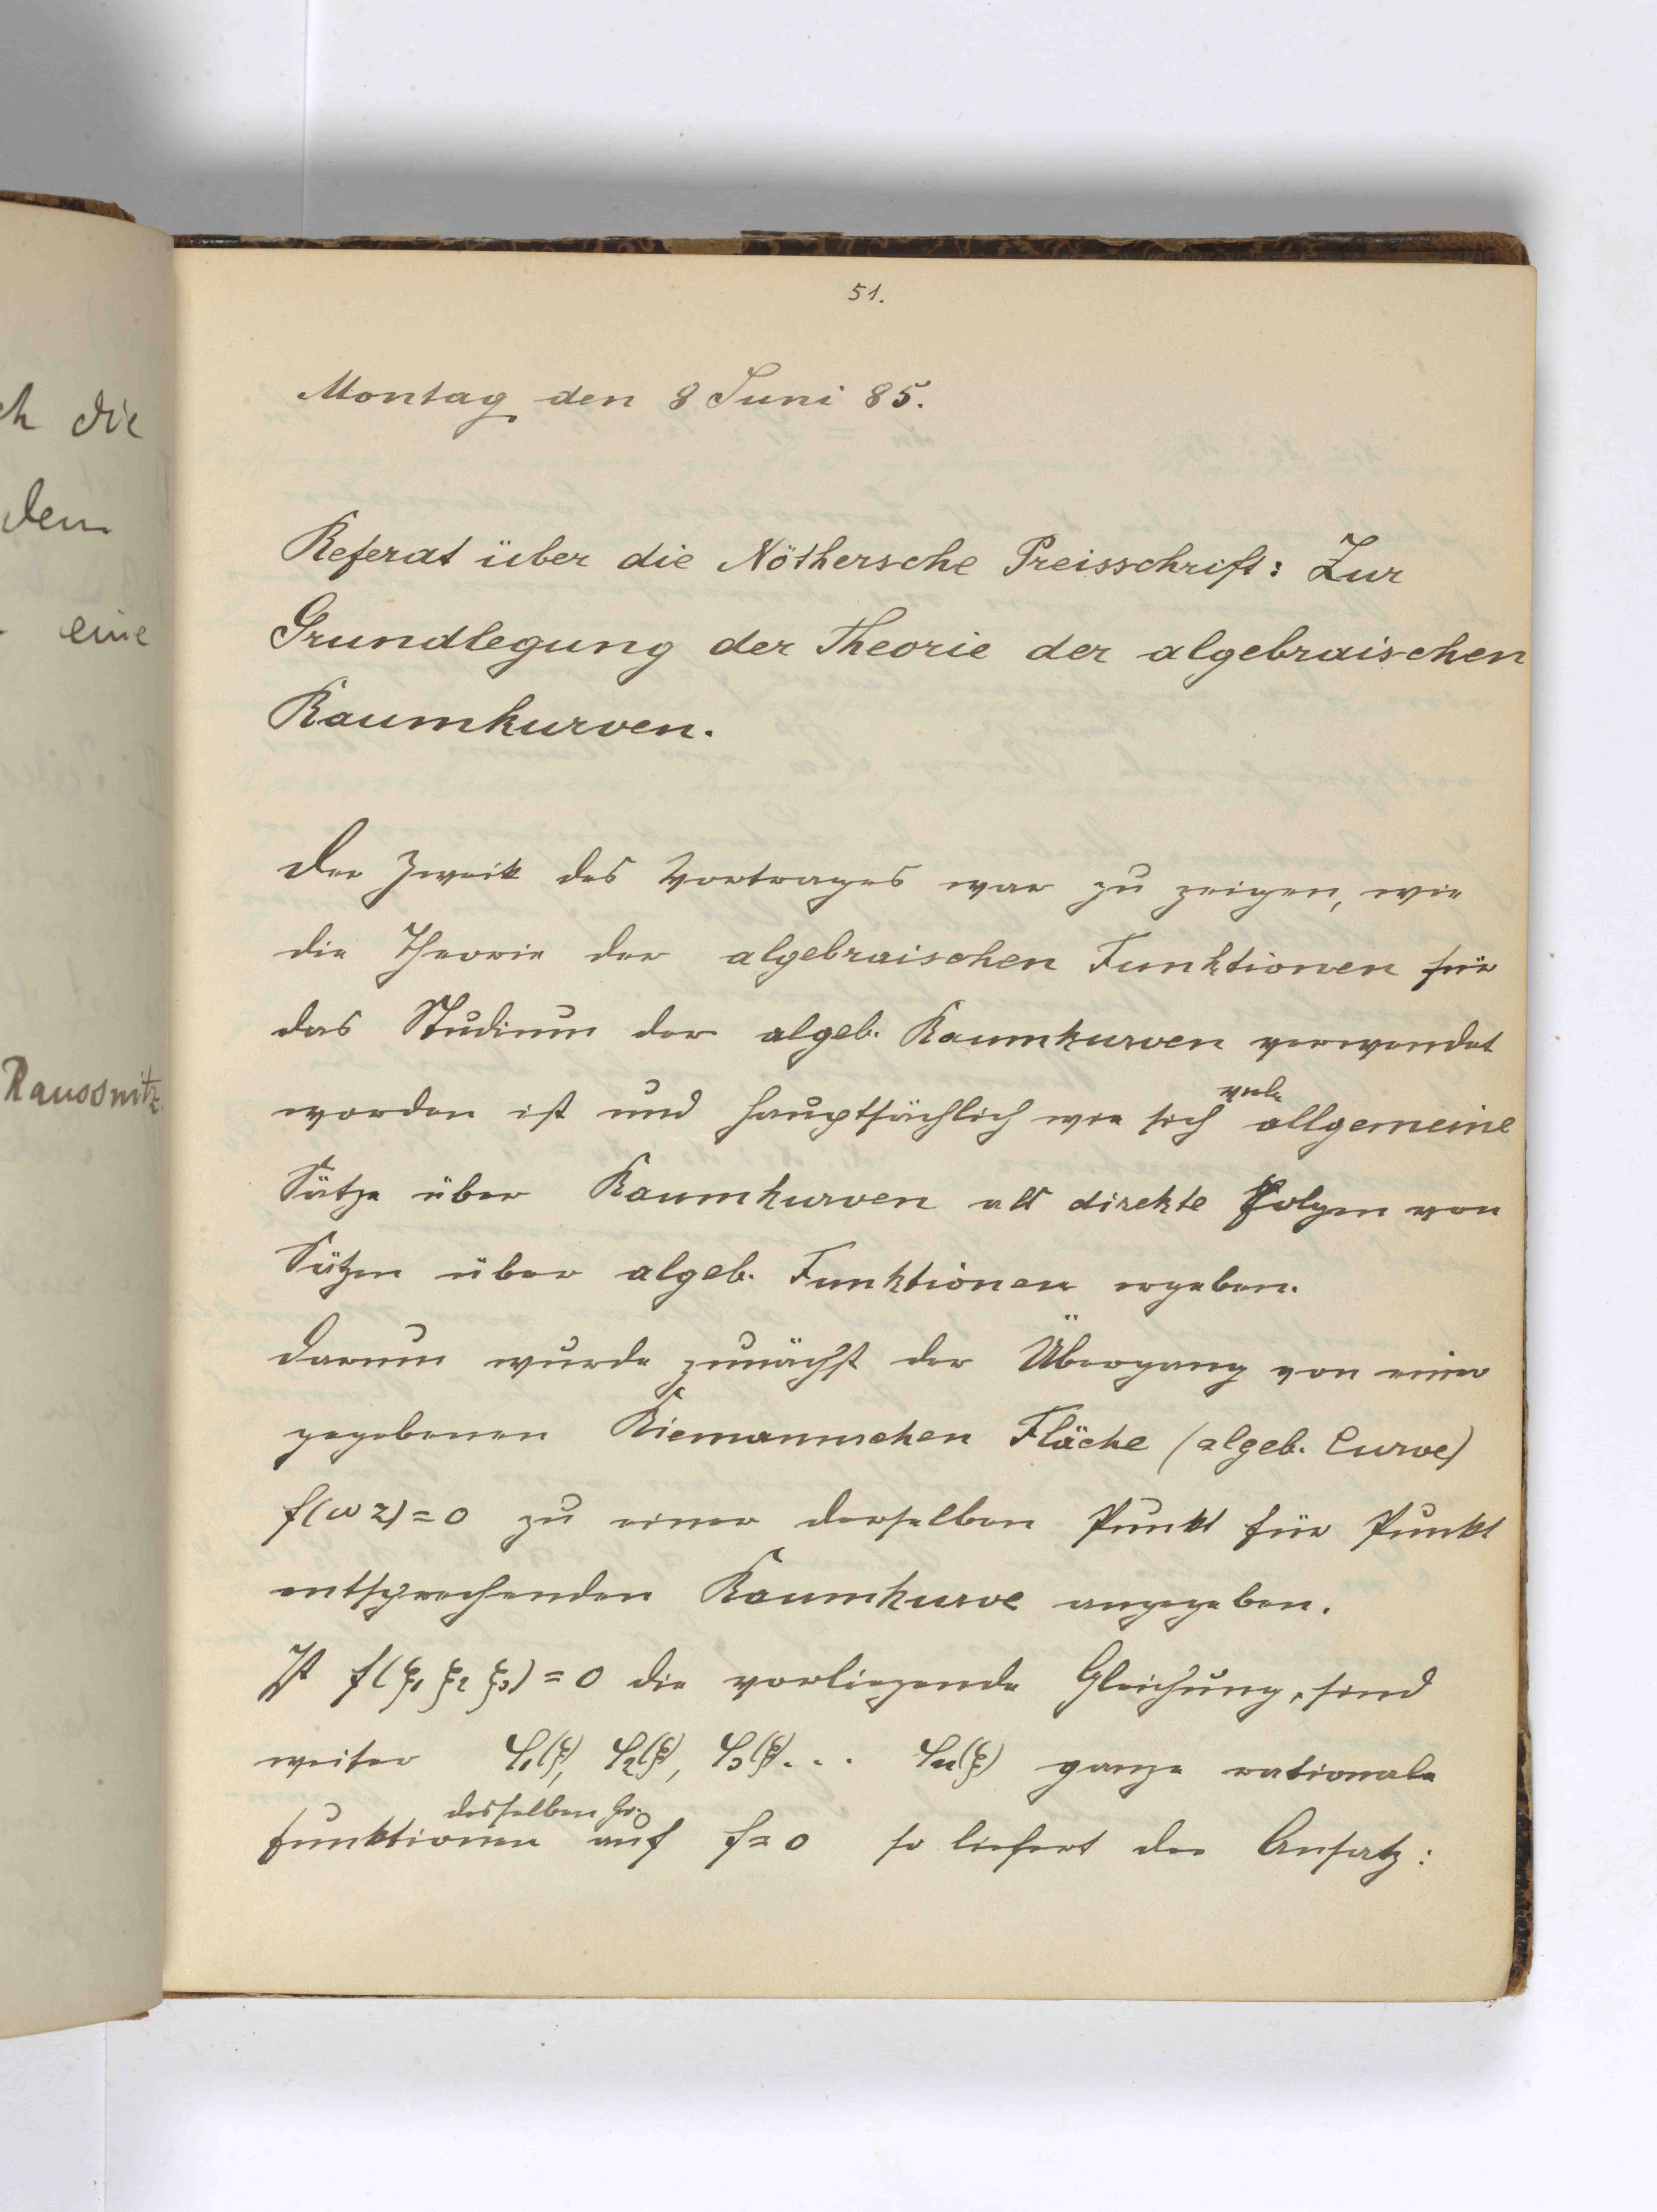 ch die
dem
eine
Raussnitz.
51.
Montag den 8 Juni 85.
Referat über die Nöthersche Preisschrift: Zur
Grundlegung der Theorie der algebraischen
Raumkurven.
Der Zweck des Vortrages war zu zeigen, wie
die Theorie der algebraischen Funktionen für
das Studium der algeb. Raumkurven verwendet
viele
worden ist und hauptsächlich wie sich allgemeine
Sätze über Raumkurven als direkte Folgen von
Sätzen über algeb. Funktionen ergeben.
Darum wurde zunächst der Übergang von einer
gegebenen Riemannschen Fläche (algeb. Curve)
f(w z) = 0 zu einer derselben Punkt für Punkt
entsprechenden Raumkurve angegeben.
Ist f(ξ₁ ξ₂ ξ₃) = 0 die vorliegende Gleichung, sind
weiter φ₁(ξ), φ₂(ξ), φ₃(ξ)... φₙ(ξ) ganze rationale
desselben Gr.
Funktionen auf f = 0 so liefert der Ansatz: